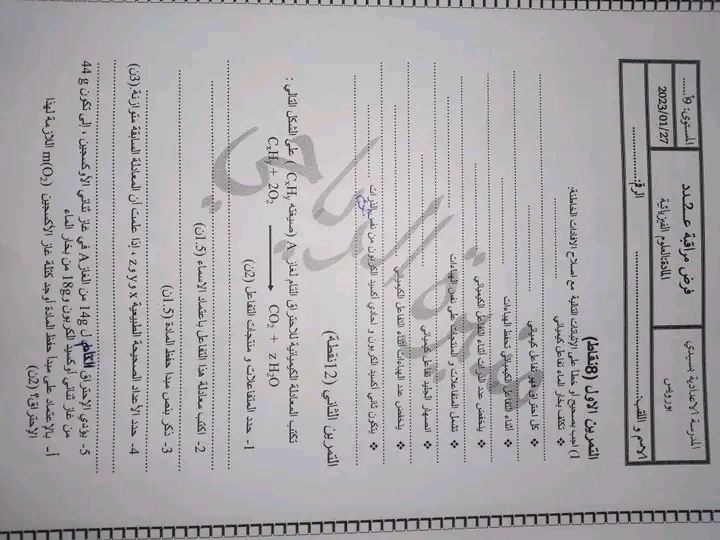 المدرسة الاعدادية بسيدي بورويس
فرض مراقبة عـ2ـدد
المادة:العلوم الفيزيائية
المستوى: 9أ......
2023/01/27
الاسم و اللقب:............................ الرقم:............
التمرين الاول (8نقاط)
1) اجب بصحيح أو خطأ على الافادات التالية مع اصلاح الافادات الخاطئة:
تكثف بخار الماء تفاعل كيميائي
❖ كل احتراق فهو تفاعل كيميائي
❖ أثناء التفاعل الكيميائي تحفظ الهباءات
❖ ينخفض عدد الذرات أثناء التفاعل الكيميائي
❖ تشمل المتفاعلات و المنتجات على نفس الهباءات
❖ انصهار الجليد تفاعل كيميائي
❖ ينخفض عدد الهباءات أثناء التفاعل الكيميائي
❖ يتكون ثاني أكسيد الكربون و أحادي أكسيد الكربون من نفس الذرات
التمرين الثاني (12نقطة)
تكتب المعادلة الكيميائية للاحتراق التام لغاز A (صيغته CₓHᵧ ) على الشكل التالي :
CₓHᵧ + 2O₂ ⟶ CO₂ + z H₂O
1- حدد المتفاعلات و منتجات التفاعل (2ن)
2- اكتب معادلة هذا التفاعل باعتماد الاسماء (1.5ن)
3- ذكر بنص مبدأ حفظ المادة (1.5ن)
4- حدد الأعداد الصحيحة الطبيعية x و y و z ، إذا علمت أن المعادلة السابقة متوازنة (3ن)
5- يؤدي الاحتراق الكامل ل 14g من الغاز A في غاز ثنائي الأوكسجين ، إلى تكون 44 g
من غاز ثنائي أوكسيد الكربون و 18g من بخار الماء
أ- بالاعتماد على مبدأ حفظ المادة أوجد كتلة غاز الأكسجين m(O₂) اللازمة لهذا
الإحتراق؟ (2ن)
سيدة الرياحي